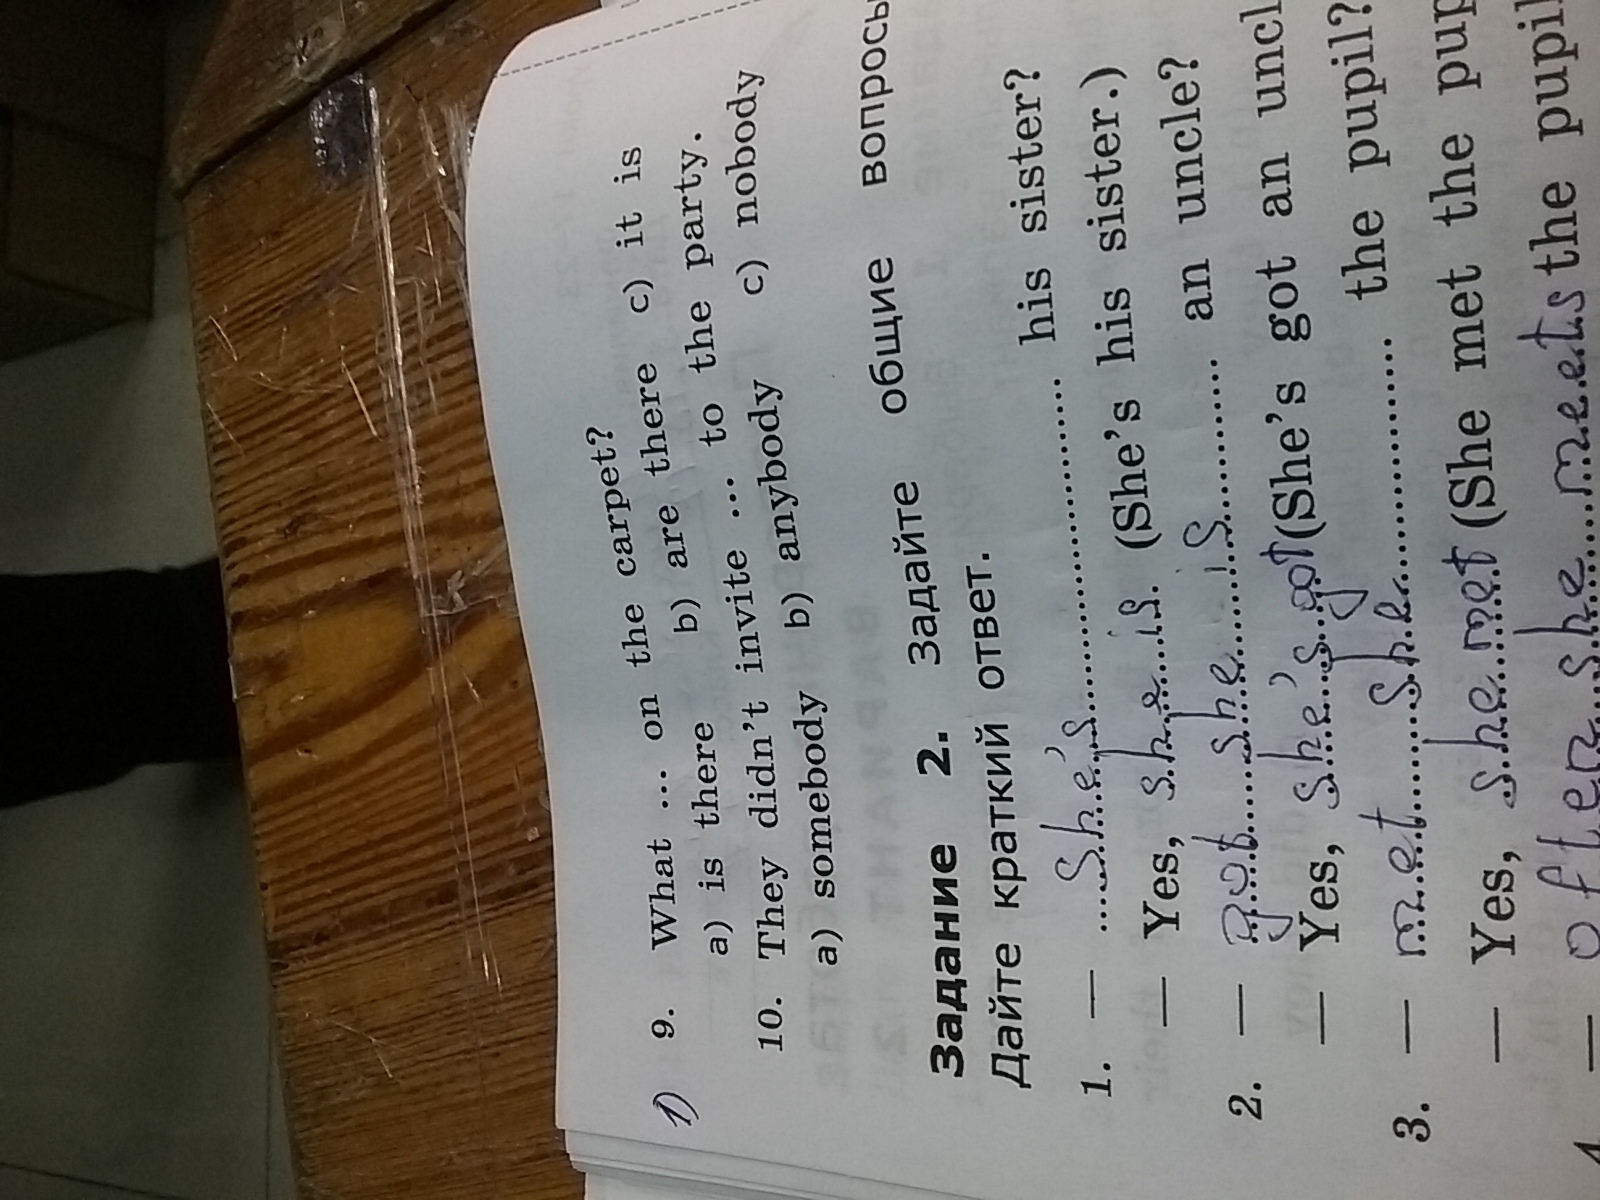 1) 9. What ... on the carpet?
a) is there b) are there c) it is
10. They didn't invite ... to the party.
a) somebody b) anybody c) nobody
Задание 2. Задайте общие вопросы
Дайте краткий ответ.
1. — she's his sister?
— Yes, she is. (She's his sister.)
2. — got she is an uncle?
— Yes, she's got (She's got an uncl
3. — met she the pupil?
— Yes, she met (She met the pup
4. — often she meets the pupil